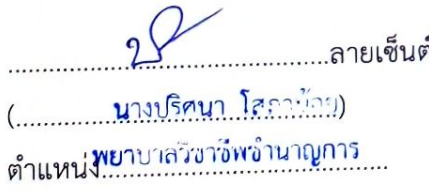 ...................................ลายเซ็นต์
(..........นางปริศนา..........)
ตำแหน่งพยาบาลวิชาชีพชำนาญการ